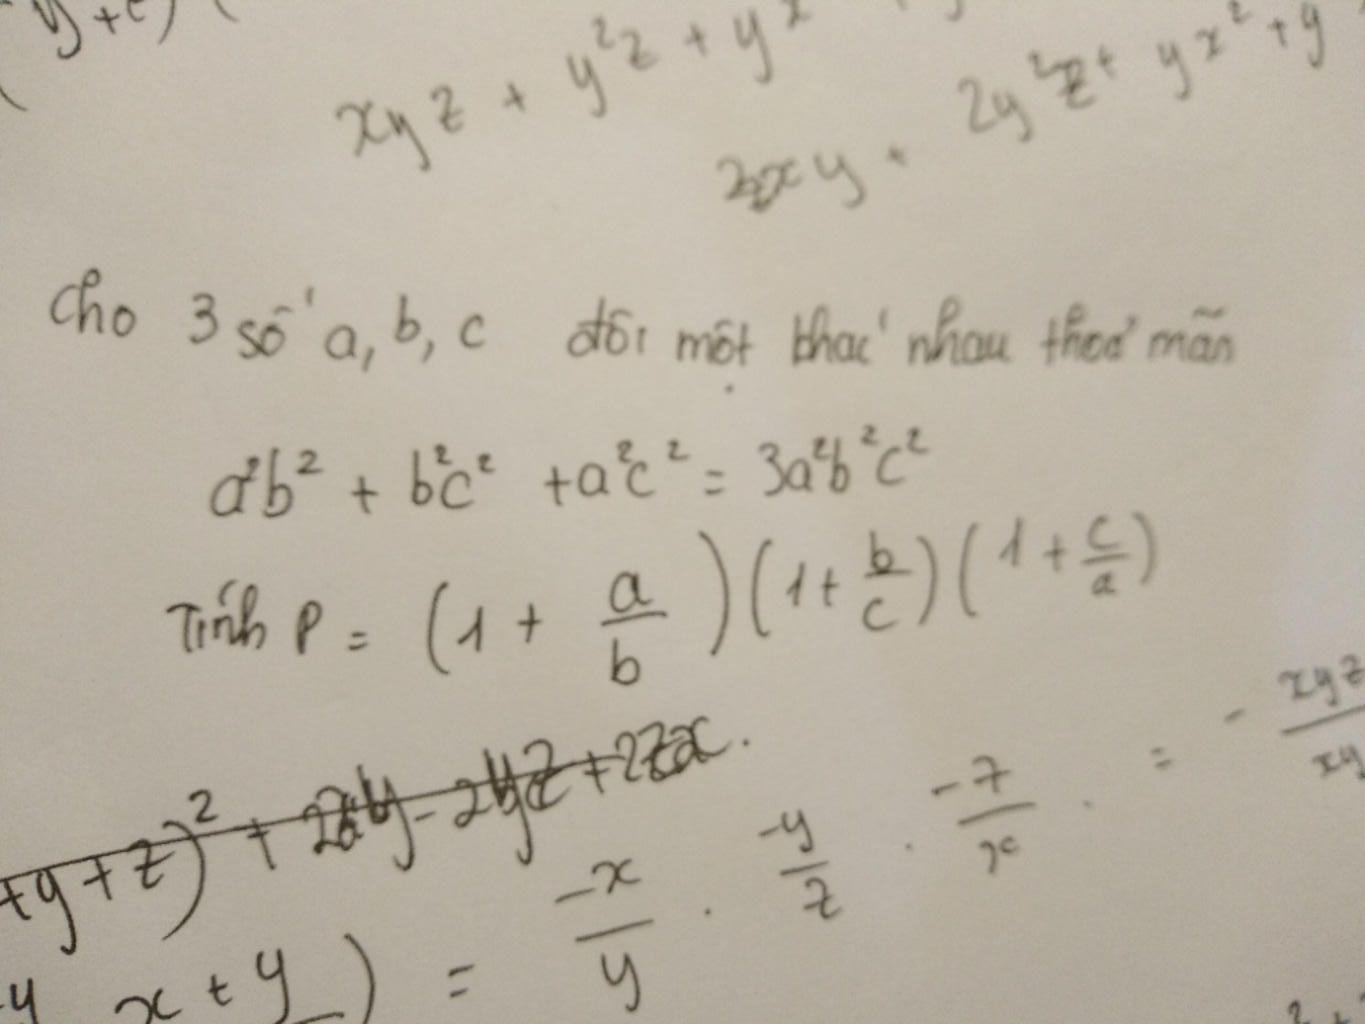 y + z) (
xyz + y²z + yx
2xy + 2y²z + yx² + y
Cho 3 số a, b, c đôi một khác nhau thoả mãn
a²b² + b²c² + a²c² = 3a²b²c²
Tính P = (1 + a/b)(1 + b/c)(1 + c/a)
+y+z)² + 2xy - 2yz + 2zx.
x + y) = -x/y . -y/z . -z/x . = - xyz/xy